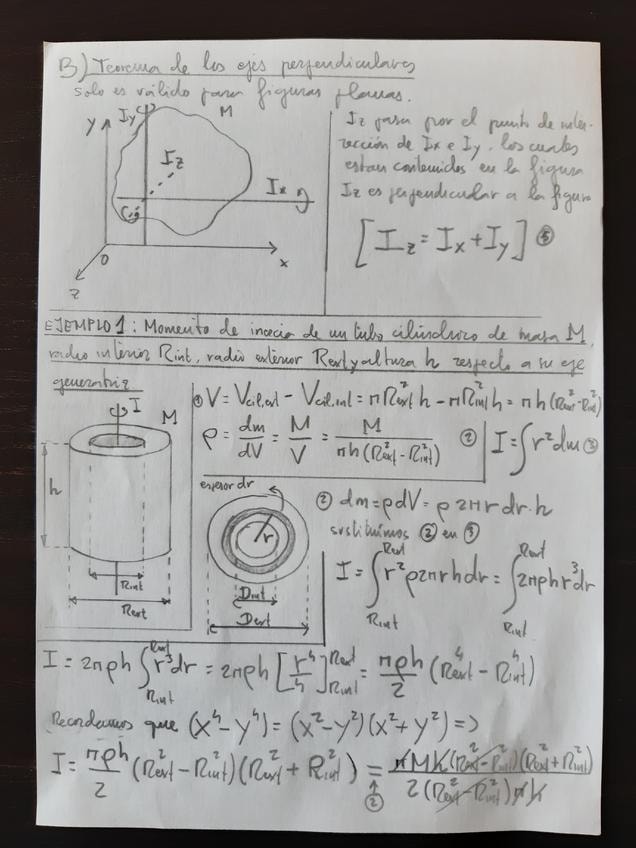 B) Teorema de los ejes perpendiculares
solo es válido para figuras planas.
Y
Iy
M
Iz
Ix
C.g
O
X
Z
Iz pasa por el punto de inter-
sección de Ix e Iy, los cuales
estan contenidos en la figura
Iz es perpendicular a la figura
[Iz = Ix + Iy] ⑤
EJEMPLO 1: Momento de inercia de un tubo cilíndrico de masa M,
radio interior Rint, radio exterior Rext y altura h respecto a su eje
generatriz
I
M
h
Rint
Rext
① V = Vcil.ext - Vcil.int = πRext²h - πRint²h = πh(Rext²-Rint²)
ρ = dm/dV = M/V = M/πh(Rext²-Rint²) ②
I = ∫r²dm ③
espesor dr
r
Dint
Dext
② dm = ρdV = ρ2πr dr·h
sustituimos ② en ③
I = ∫Rint^Rext r²ρ2πrhdr = ∫Rint^Rext 2πρhr³dr
I = 2πρh ∫Rint^Rext r³dr = 2πρh [r⁴/4]Rint^Rext = πρh/2 (Rext⁴ - Rint⁴)
Recordamos que (x⁴-y⁴) = (x²-y²)(x²+y²) =>
I = πρh/2 (Rext² - Rint²)(Rext² + Rint²) =② πMh(Rext²-Rint²)(Rext²+Rint²)/2(Rext²-Rint²)πh